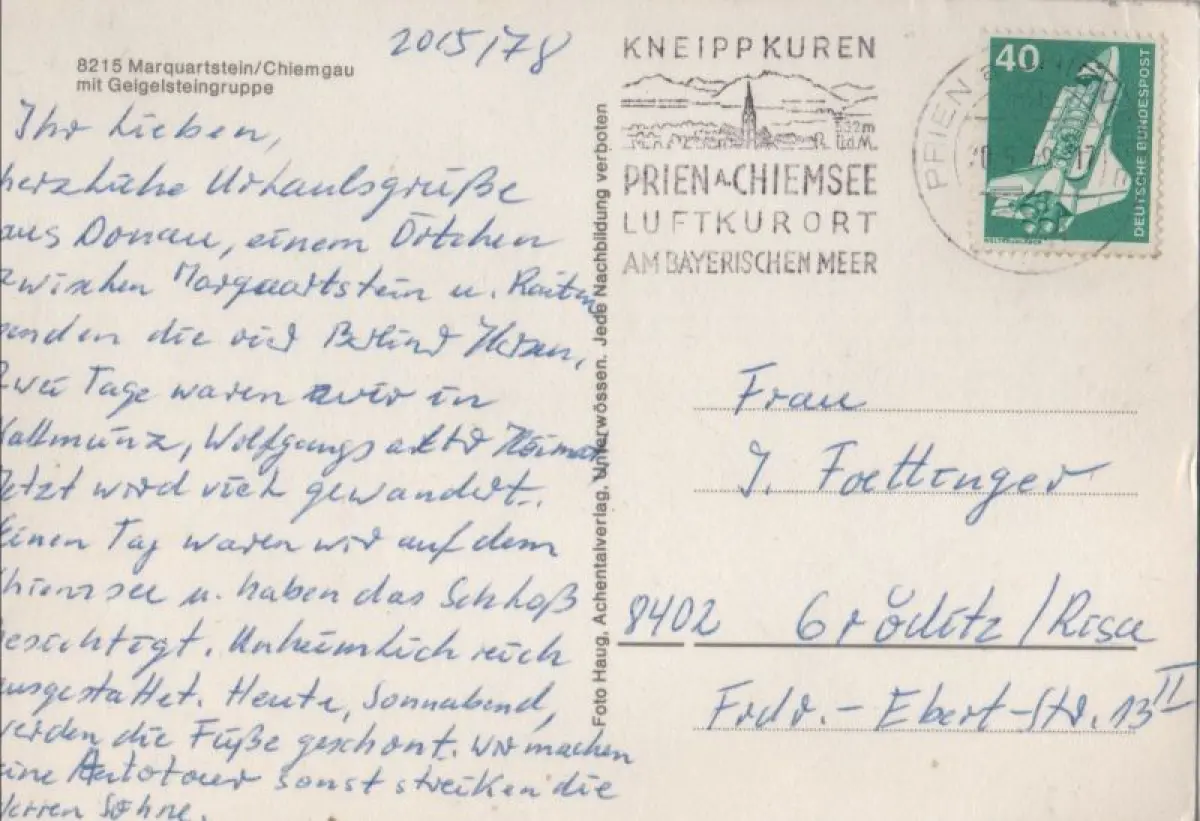 8215 Marquartstein/Chiemgau
mit Geigelsteingruppe
20/5/78
Ihr Lieben,
herzliche Urlaubsgrüße
aus Donau, einem Örtchen
zwischen Marquartstein u. Raiten
senden die vier
Zwei Tage waren wir in
Kallmünz, Wolfgangs alter Heimat
Jetzt wird viel gewandert.
Einen Tag waren wir auf dem
Chiemsee u. haben das Schloß
besichtigt. Unheimlich reich
ausgestattet. Heute, Sonnabend,
werden die Füße geschont. Wir machen
eine Autotour sonst streiken die
Herren Söhne.
Foto Haug, Achentalverlag, Unterwössen. Jede Nachbildung verboten
KNEIPPKUREN
532m
ü.d.M.
PRIEN A. CHIEMSEE
LUFTKURORT
AM BAYERISCHEN MEER
PRIEN
40
DEUTSCHE BUNDESPOST
WELTRAUMLABOR
Frau
J. Foettinger
8402 Gröditz/Riesa
Fr.-Ebert-Str. 13 II